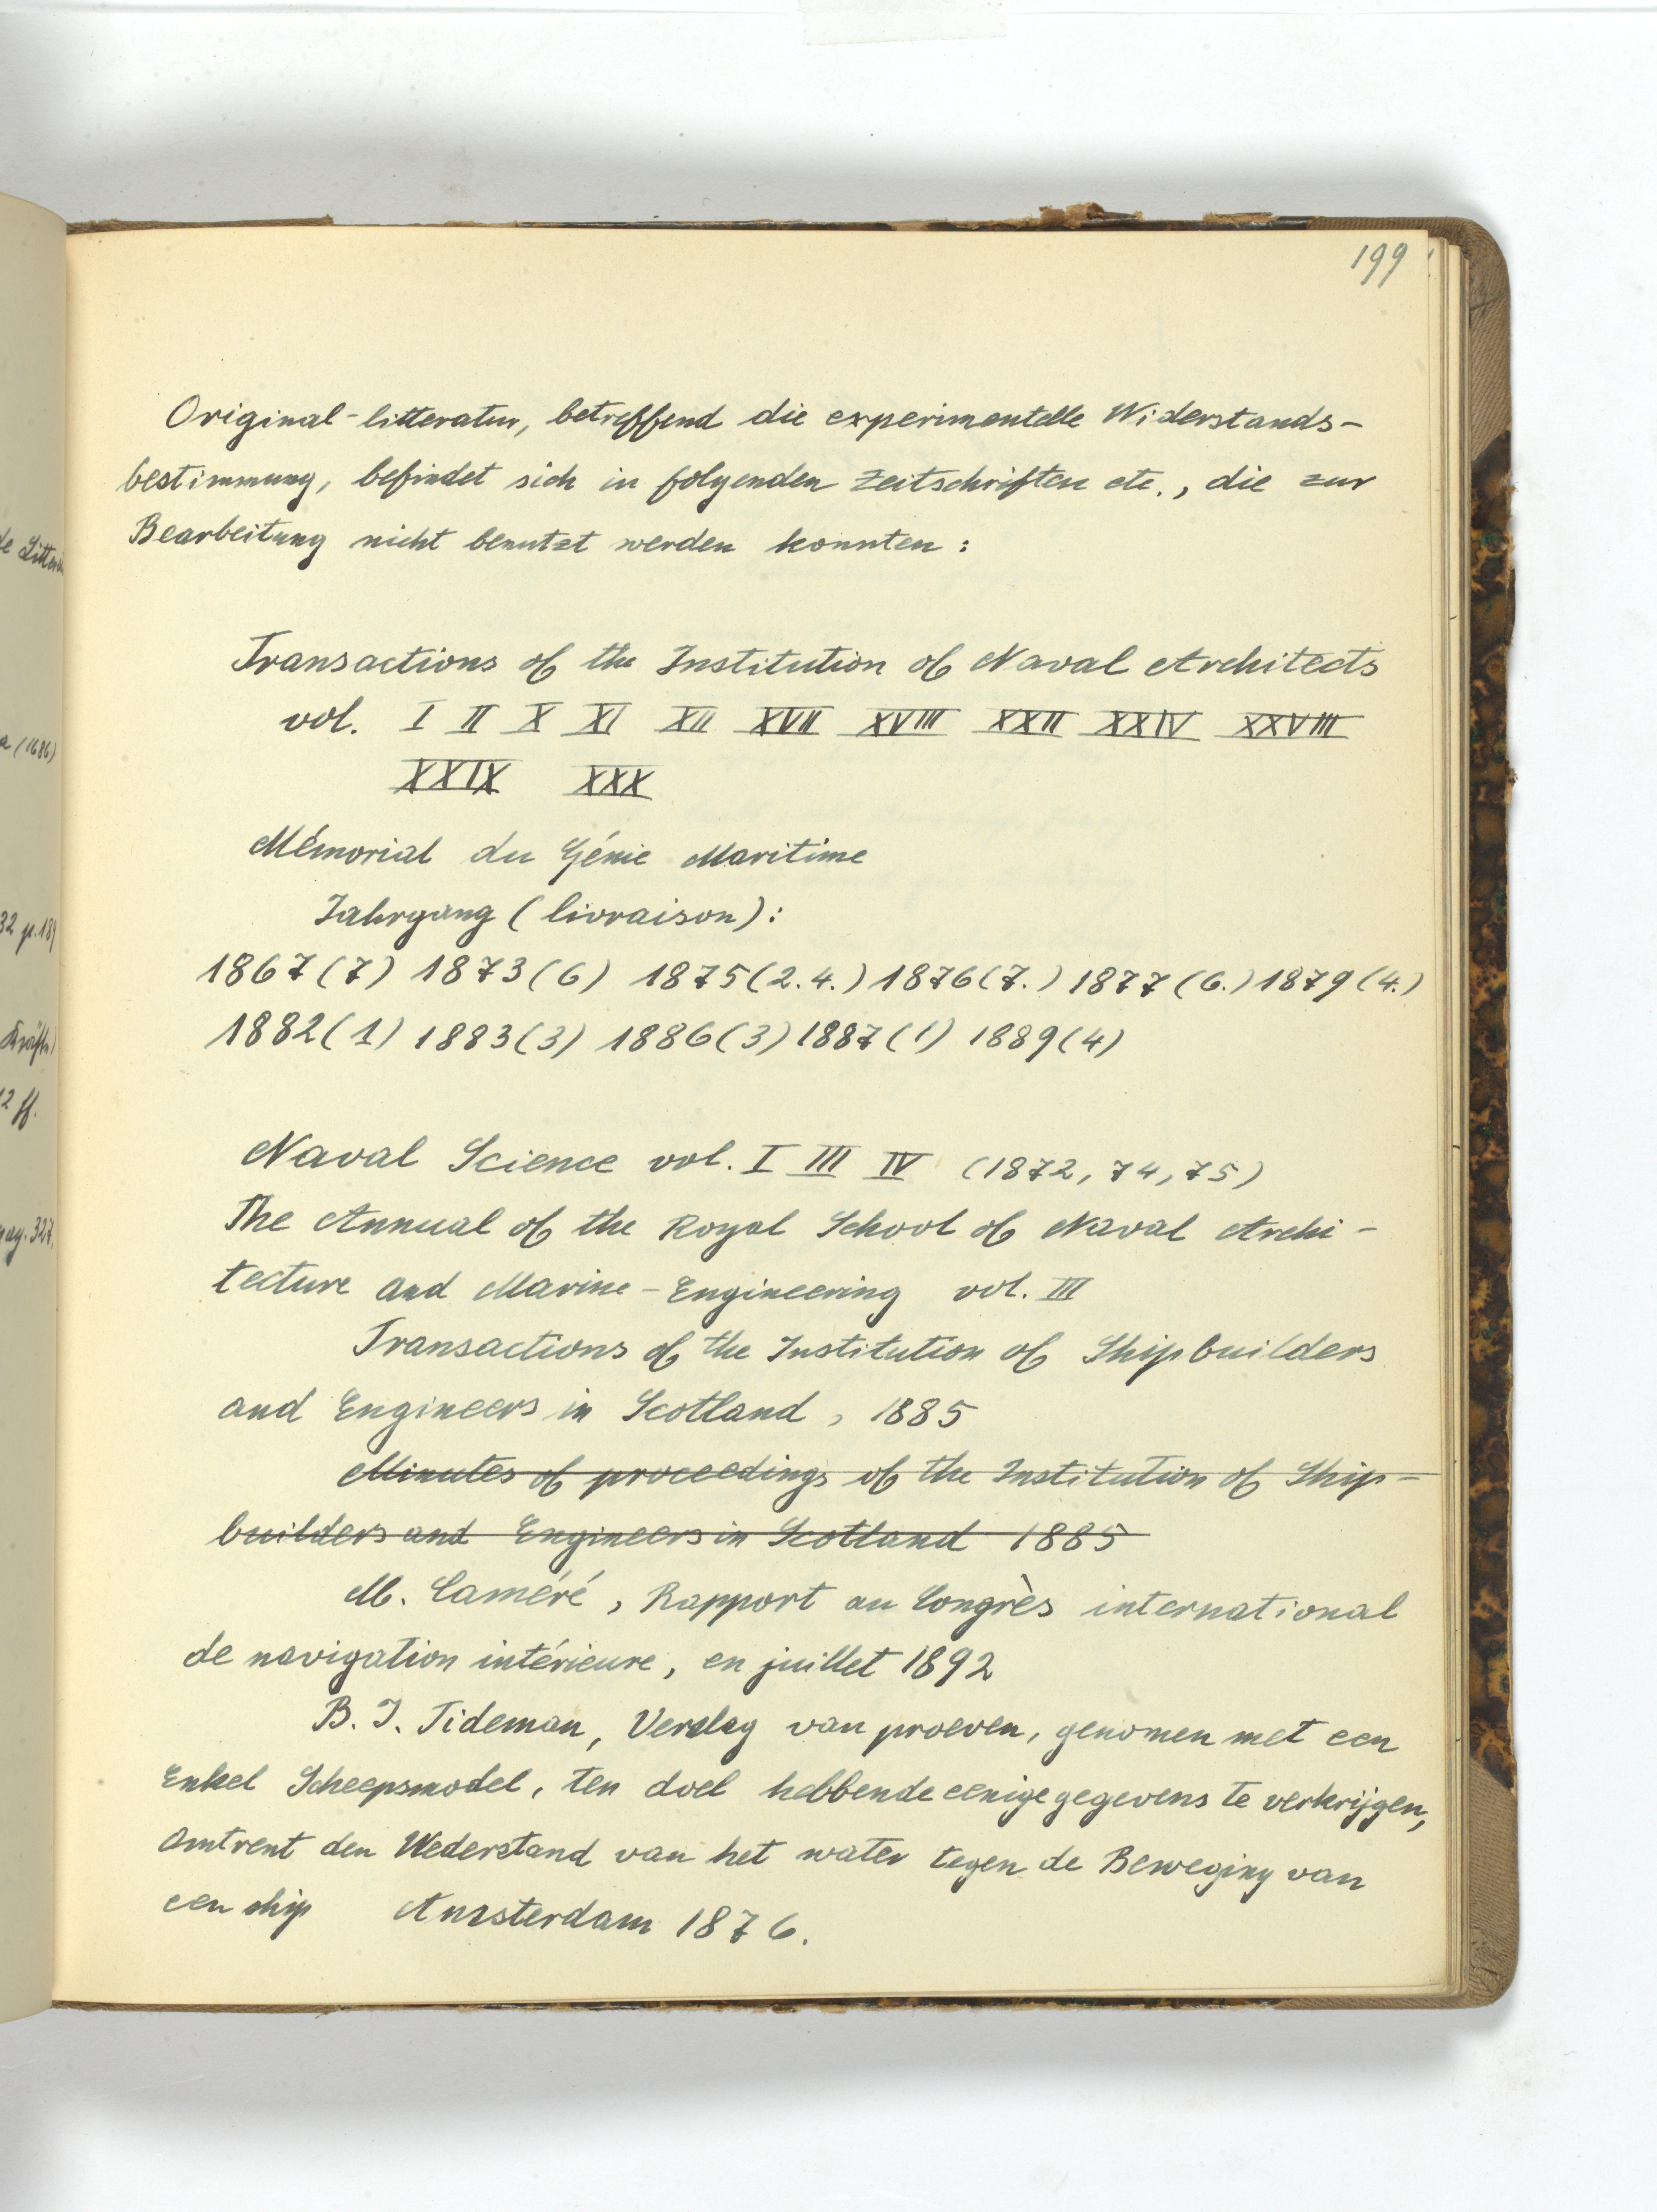 199
Original-litteratur, betreffend die experimentelle Widerstands-
bestimmung, befindet sich in folgenden Zeitschriften etc., die zur
Bearbeitung nicht benutzt werden konnten:
Transactions of the Institution of Naval Architects
vol. I II X XI XII XVII XVIII XXII XXIV XXVIII
XXIX XXX
Mémorial du Génie Maritime
Jahrgang (livraison):
1867(7) 1873(6) 1875(2.4.) 1876(7.) 1877(6.) 1879(4.)
1882(1) 1883(3) 1886(3) 1887(1) 1889(4)
Naval Science vol. I III IV (1872, 74, 75)
The Annual of the Royal School of Naval Archi-
tecture and Marine-Engineering vol. III
Transactions of the Institution of Shipbuilders
and Engineers in Scotland, 1885
Minutes of proceedings of the Institution of Ship-
builders and Engineers in Scotland 1885
M. Caméré, Rapport au Congrès international
de navigation intérieure, en juillet 1892
B. J. Tideman, Verslag van proeven, genomen met een
Enkel Scheepsmodel, ten doel hebbende eenige gegevens te verkrijgen,
Omtrent den Wederstand van het water tegen de Beweging van
een ship Amsterdam 1876.
de Litter
a (1686)
32 p. 189
Kräfte)
12 ff.
pag. 327.